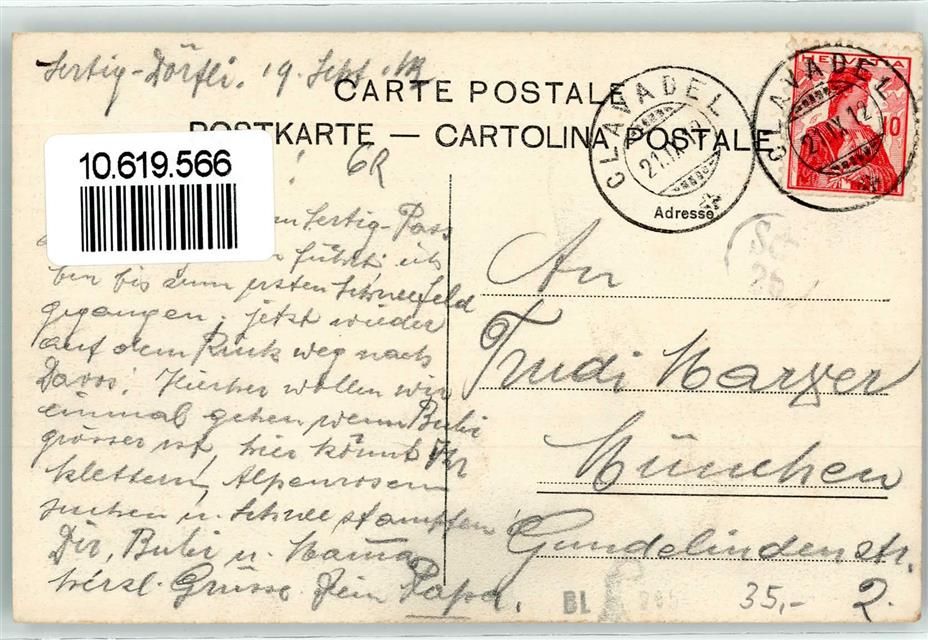 Sertig-Dörfli. 19. Sept. 12
CARTE POSTALE
POSTKARTE — CARTOLINA POSTALE
CLAVADEL
21.IX.12
CLAVADEL
21.IX.12
HELVETIA
10
Adresse
10.619.566
Sertig-Pass
führt, ich
bin bis zum ersten Schneefeld
gegangen; jetzt wieder
auf dem Rückweg nach
Davos. Hierher wollen wir
einmal gehen wenn Bubi
grösser ist, hier könnt Ihr
klettern, Alpenrosen
suchen u. Schnee stampfen!
Dir, Bubi u. Mama
herzl. Grüsse. Dein Papa.
An
Trudi Marxer
München
Gundelindenstr.
2.
BL
35,-